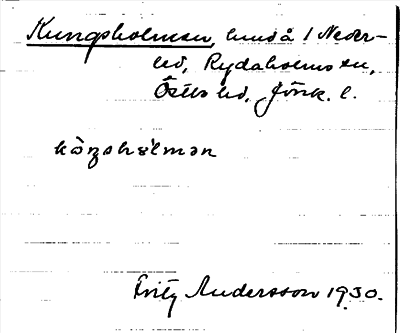 Kungsholmen, hmså 1 Neder-
led, Rydaholms sn,
Östbo hd, Jönk. l.
kåṉsholmen
Fritz Andersson 1930.